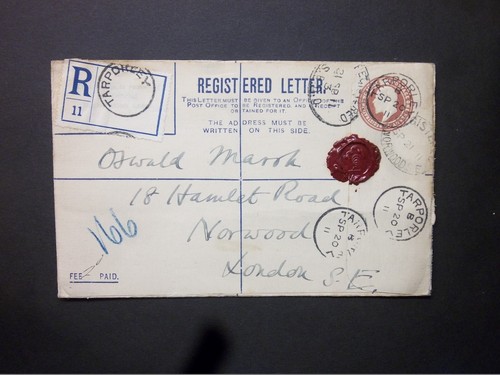 R
11
TARPORLEY
REGISTERED LETTER.
THIS LETTER MUST BE GIVEN TO AN OFFICER OF THE
POST OFFICE TO BE REGISTERED AND A RECEIPT
OBTAINED FOR IT.
THE ADDRESS MUST BE
WRITTEN ON THIS SIDE.
Oswald Marsh
18 Hamlet Road
Norwood
London S.E.
166
FEE PAID.
TARPORLEY
8
SP 20
11
TARPORLEY
8
SP 20
11
TARPORLEY
SP 20